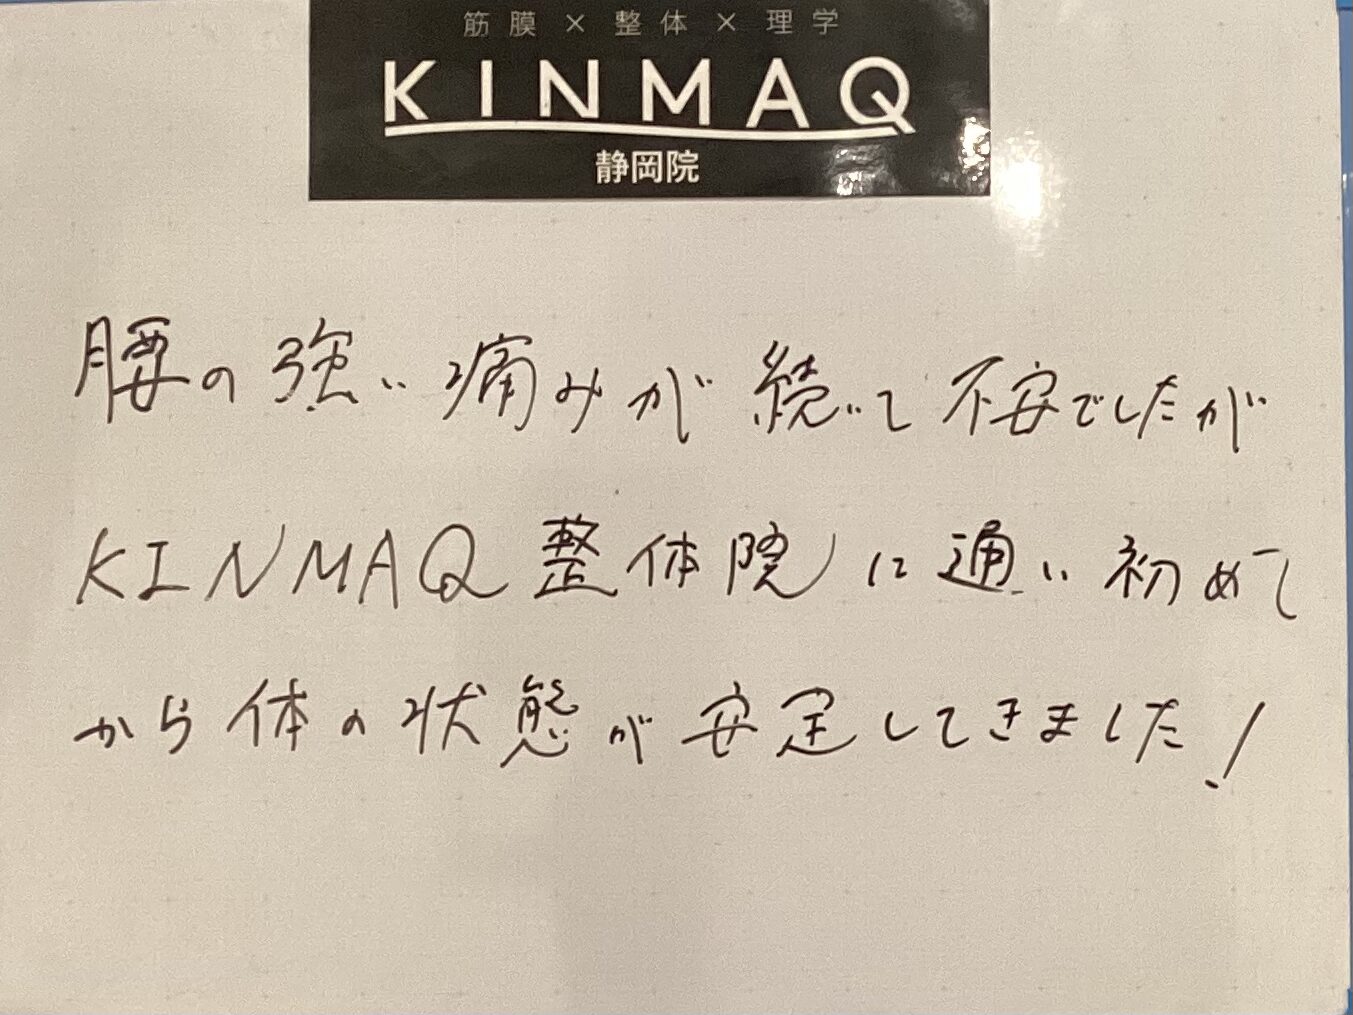 筋膜×整体×理学
KINMAQ
静岡院
腰の強い痛みが続いて不安でしたが
KINMAQ整体院に通い初めて
から体の状態が安定してきました!